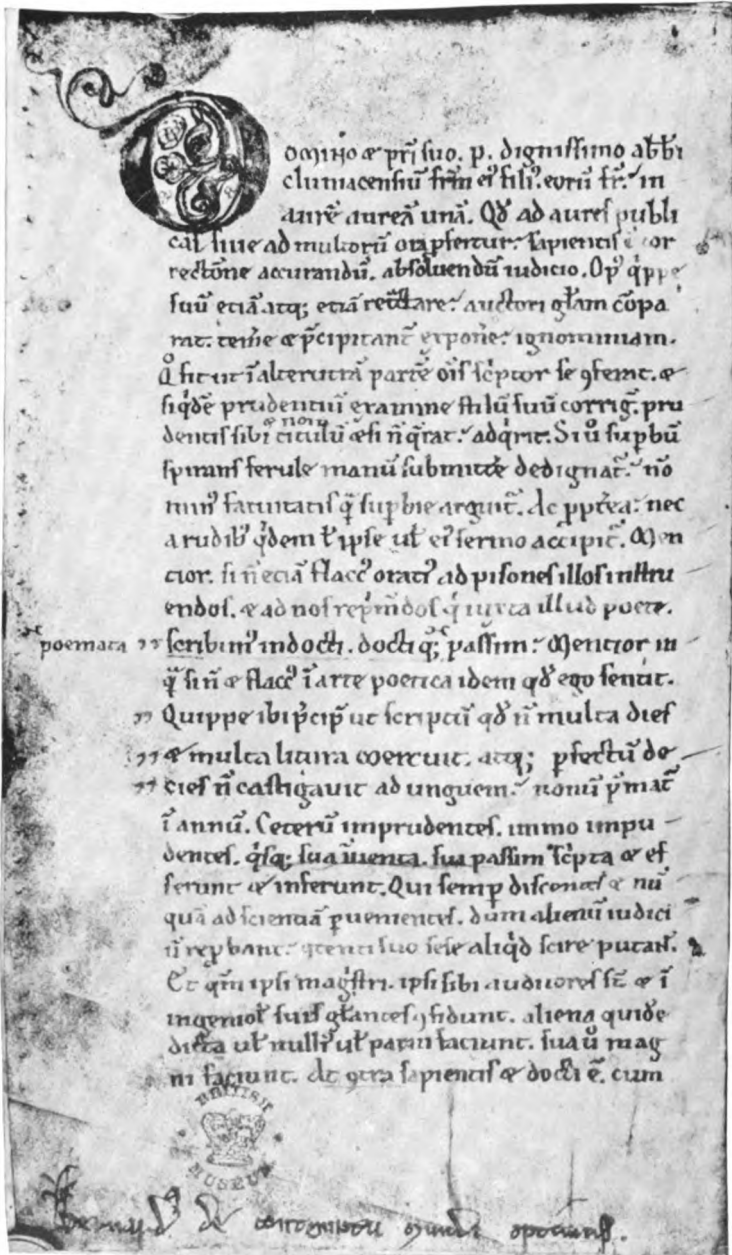 DOMINO & pri suo. p. dignissimo abbi
cluniacensiū frm ei' fili'. eorū fr. in
aurē aureā unā. Qd ad aures publi
cas siue ad multorū ora pfertur: sapientis ē cor
rectione accurandū. absoluendū iudicio. Op' qippe
suū etiā atq; etiā rectare: auctori glam cōpa
rat. temere & pcipitant exponere: ignominiam.
Qo fit ut ī alterutrā partē ois scptor se 9ferat. &
siqdē prudentiū examine stilū suū corrig. pru
dentis sibi titulū & si ñ qrat: adqrit. Si uo supbū
spirans ferule manū submittere dedignat: nō
min' fatuitatis q supbie arguit. Ac ppterea: nec
a rudib' qdem ut ipse ut ei' sermo accipit. Men
tior. si ñ etiā flacc' orati' ad pisones illos instru
endos. & ad nos reprimdos q iuxta illud poete.
poemata scribim' indocti. docti q; passim: Mentior in
qā si ñ & flacc' ī arte poetica idem qd ego sentit.
Quippe ibi pcip ut scriptū qd ñ multa dies
& multa litura coercuit. atq; pfectū de
cies ñ castigauit ad unguem: nonū pmat
ī annū. Ceterū imprudentes. immo impu
dentes. qsq; sua inuenta. sua passim scpta & ef
ferunt & inferunt. Qui semp discentes & nū
quā ad scientiā puenientes. dum alienū iudiciū
ñ repbant: 9tenti suo sese aliqd scire putant.
Et qm ipsi magistri. ipsi sibi auditores st & ī
ingeniol' suis glantes 9fidunt. aliena quidē
dicta ut nulli' ut parui faciunt. sua uo mag
ni faciunt. At 9tra sapientis & docti ē. cum
BRITISH
MUSEUM
Bernard' de contemptu mundi